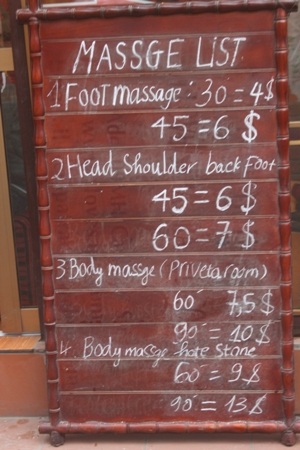 MASSGE LIST
1 Foot massage: 30 = 4$
45 = 6 $
2 Head Shoulder back Foot
45 = 6 $
60 = 7 $
3 Body massge (Priveta room)
60' 7,5 $
90' = 10 $
4. Body massge hote stone
60' = 9 $
90' = 13 $